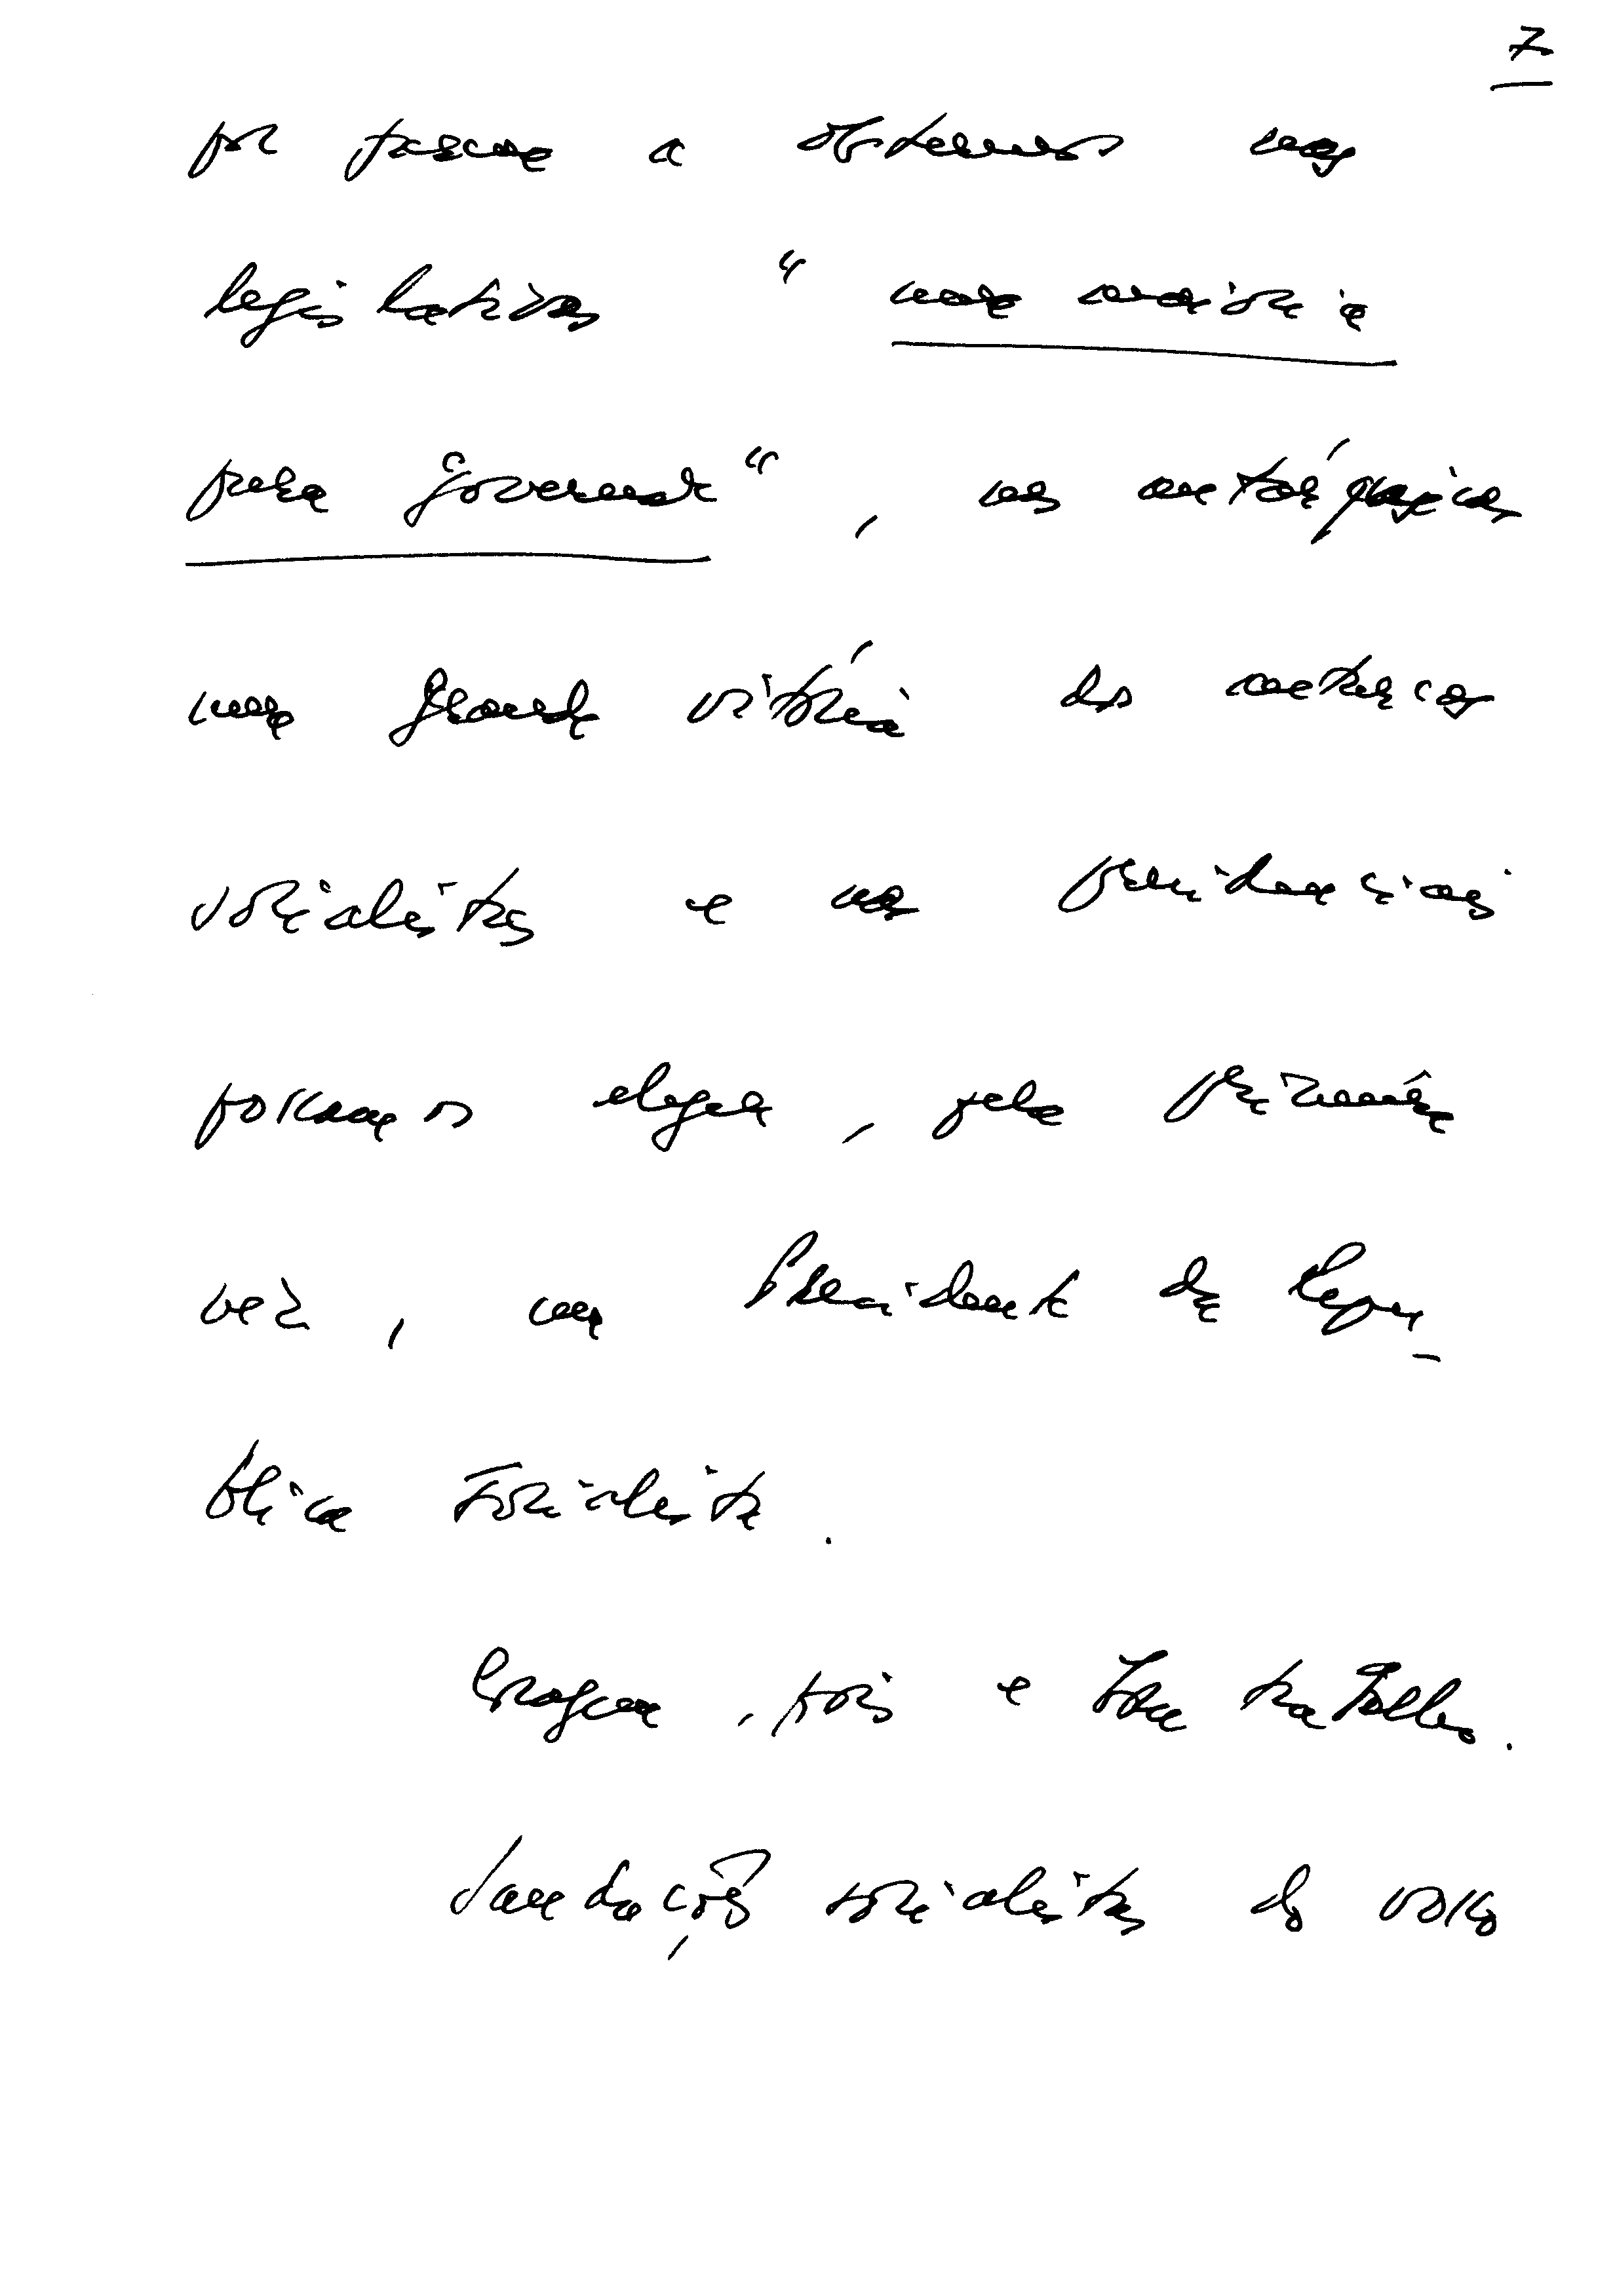 7
por forma a obtermos nas
legislativas " uma maioria
para governar ", nas autárquicas
uma grande vitória das autarcas
socialistas e nas presidenciais
possamos eleger, pela primeira
vez, um Presidente da Repu-
blica Socialista.
Coragem, pois e bom trabalho.
Saudações socialistas do vosso